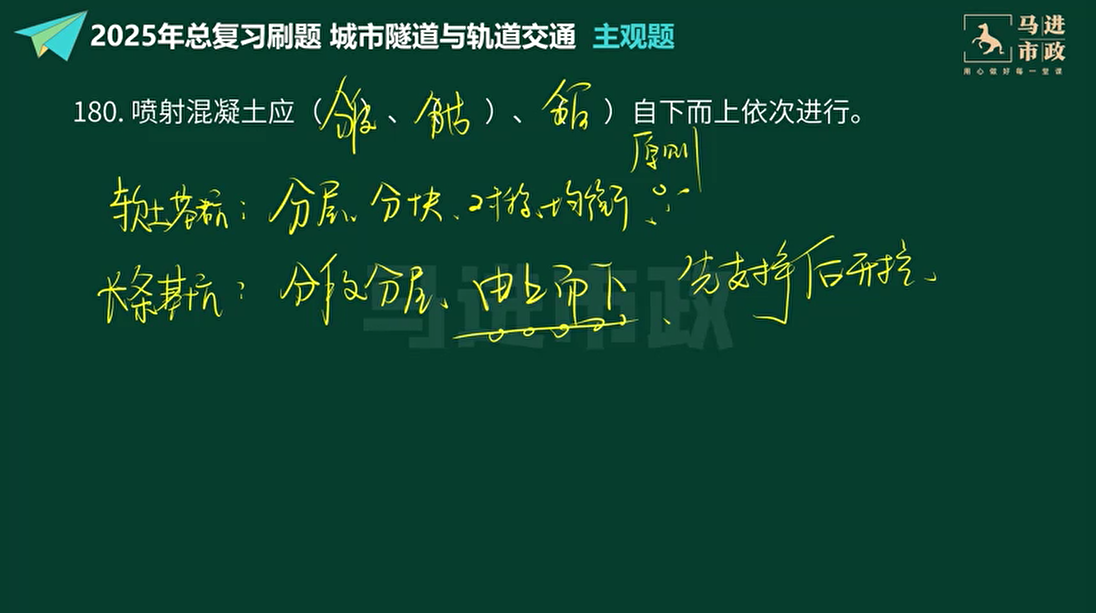 2025年总复习刷题 城市隧道与轨道交通 主观题
马进市政
用心做好每一堂课
180. 喷射混凝土应（分段、分片、分层）自下而上依次进行。
原则
软土基坑：分层、分块、对称、均衡
长条基坑：分段分层、由上而下、先支撑后开挖、
马进市政